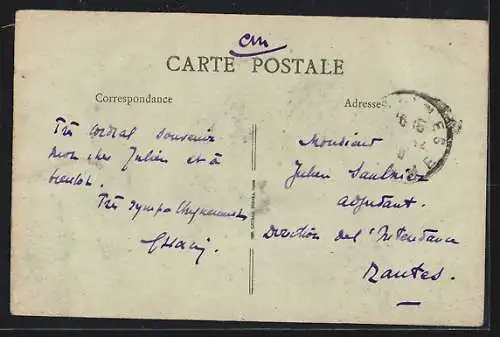 cm
CARTE POSTALE
Correspondance
Adresse
Très cordial souvenir
mon cher Julien et à
bientôt.
Très sympathiquement
Monsieur
Julien Saulnier
adjudant.
Direction de l'Intendance
Nantes.